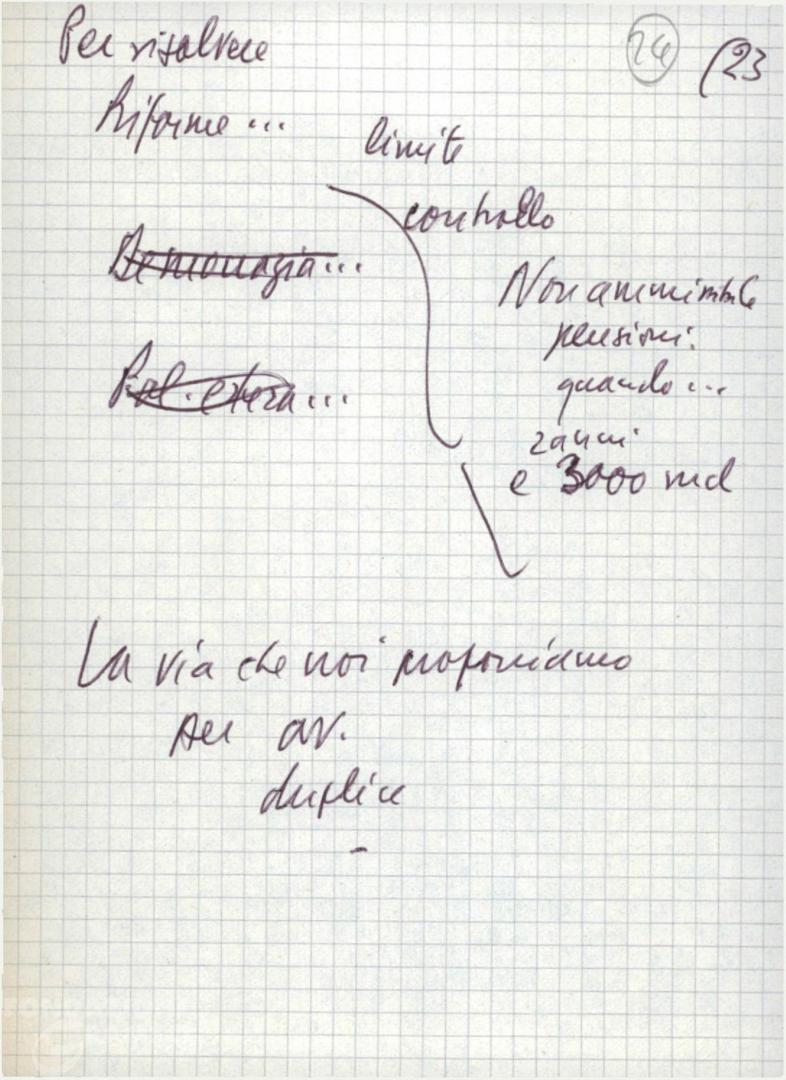 24 (23
Per risolvere
Riforme ...
limite
controllo
Democrazia ...
Pol. estera ...
Non ammissibile
pensioni:
quando ...
2 anni
e 3000 md
La via che noi proponiamo
per av.
duplice
-